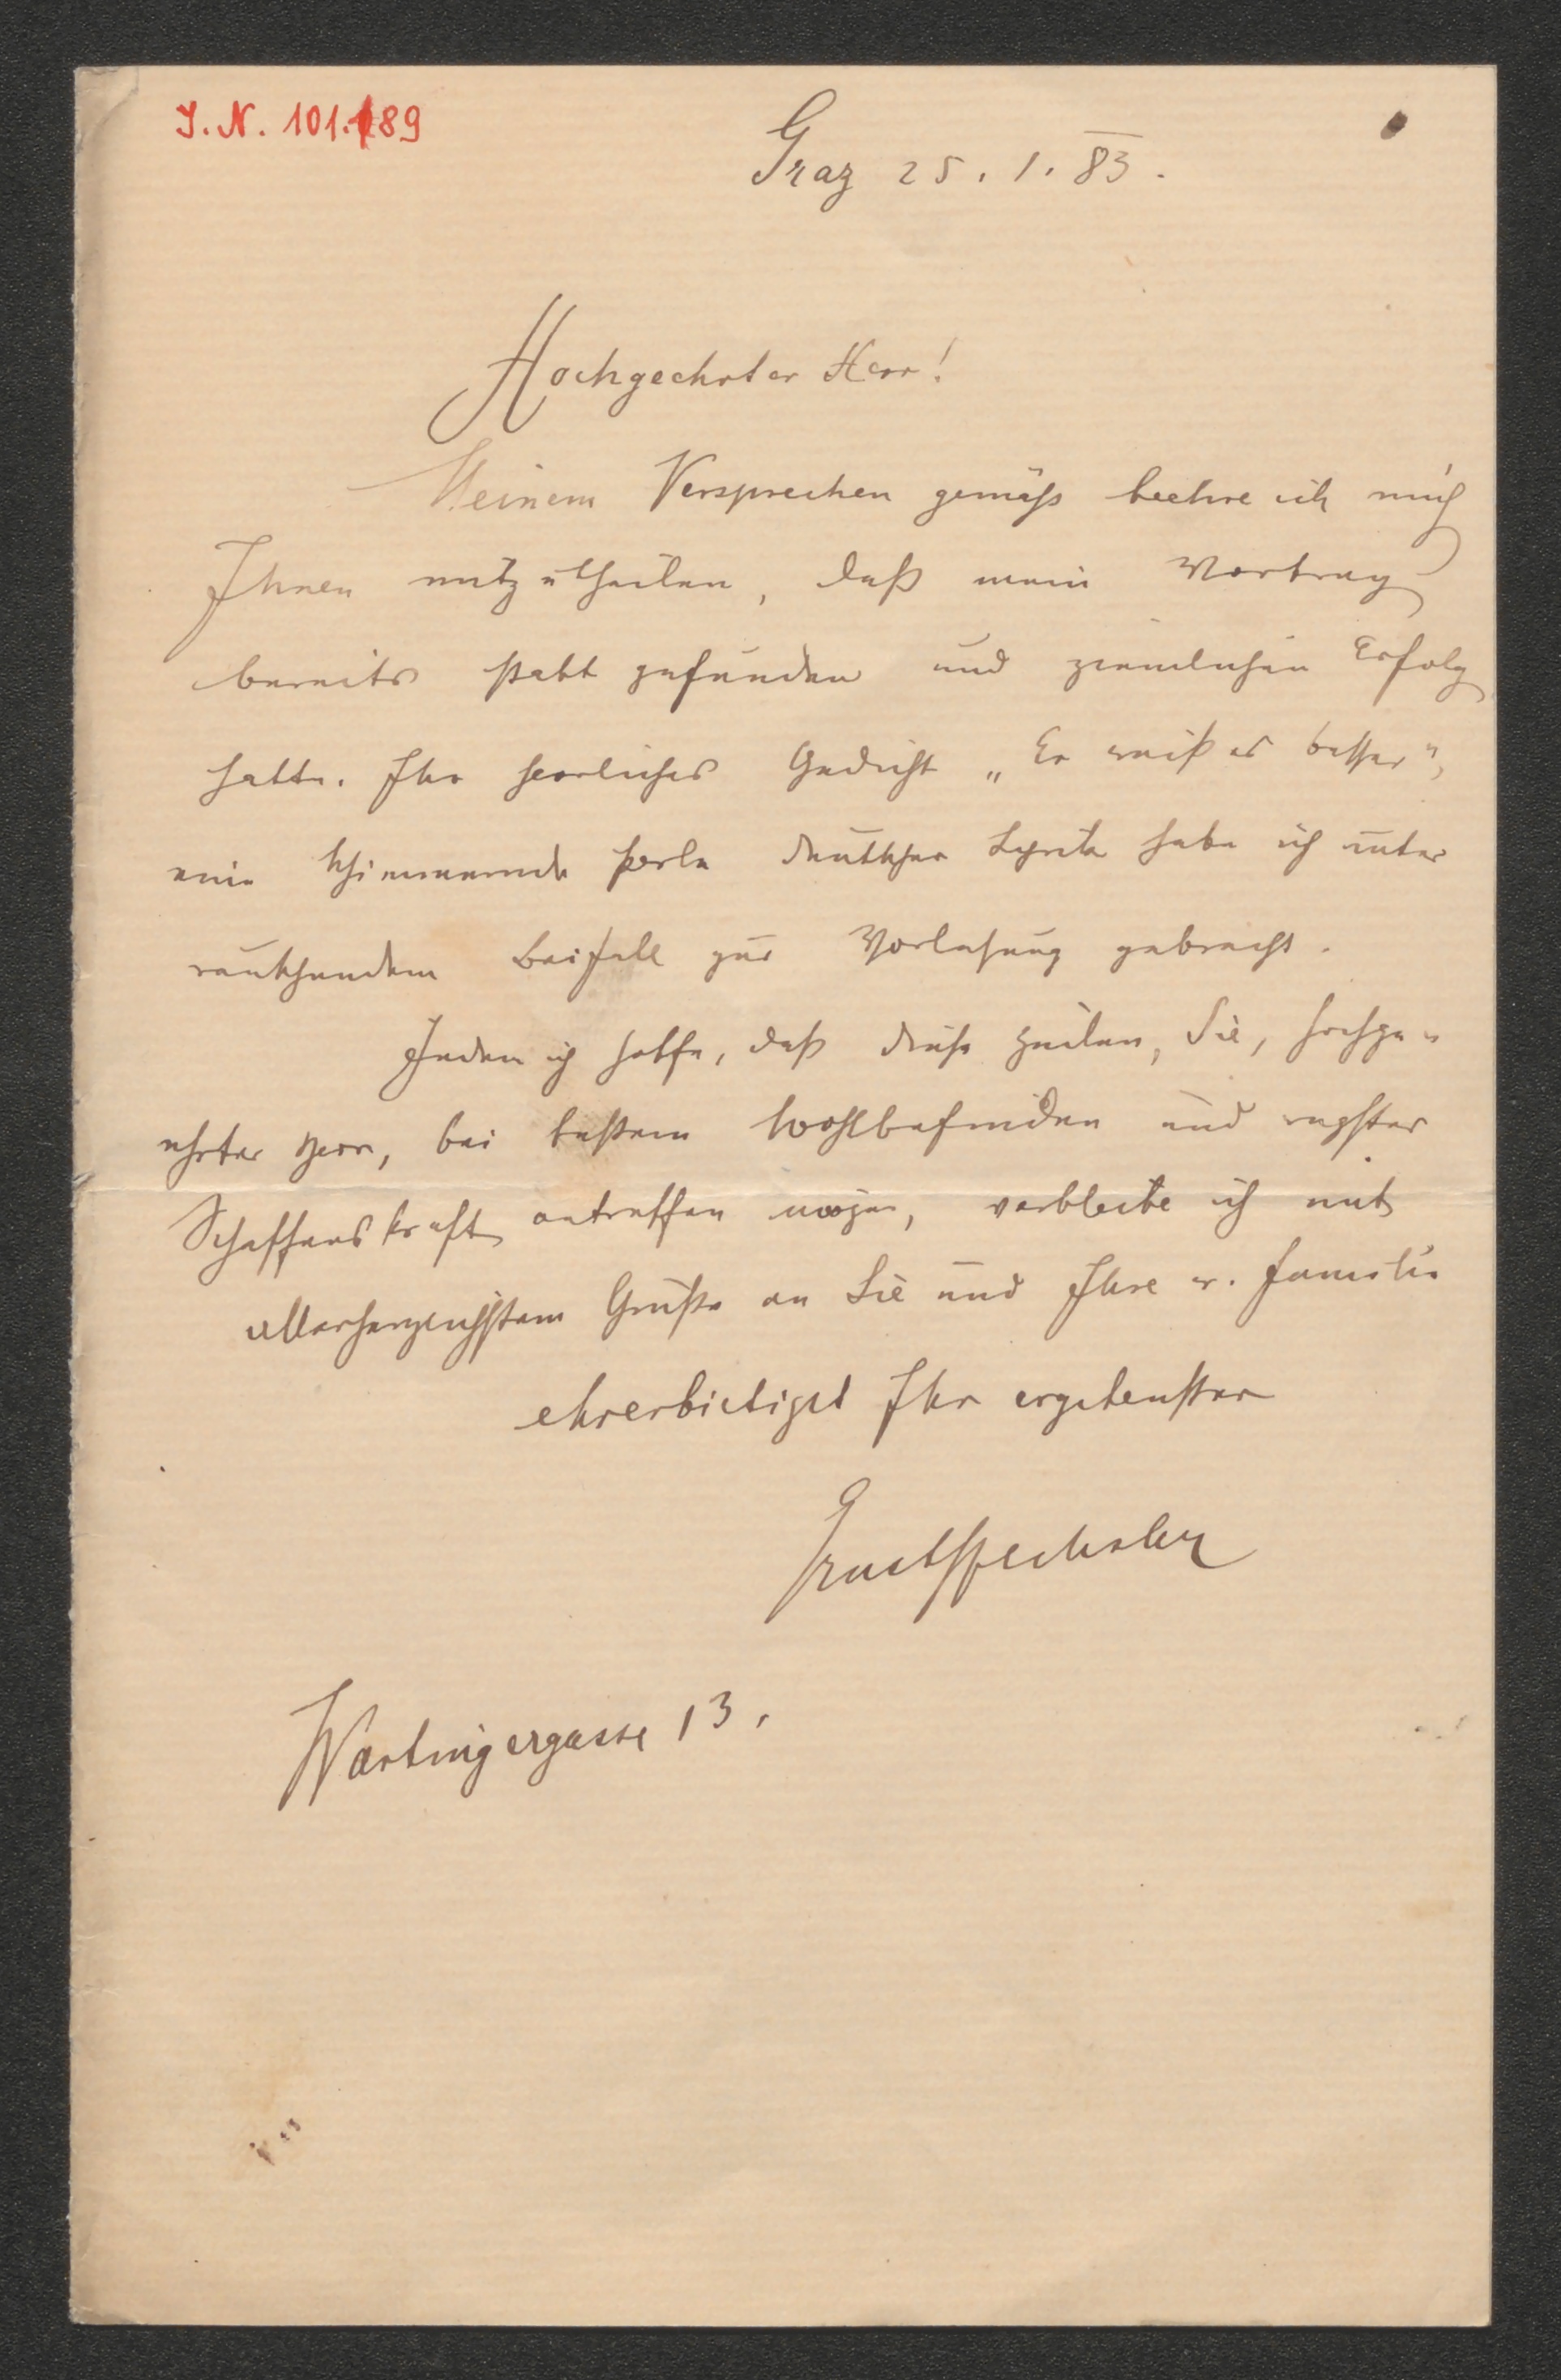 I. N. 101.189
Graz 25. 1. 83.
Hochgeehrter Herr!
Meinem Versprechen gemäß beehre ich mich
Ihnen mitzutheilen, daß mein Vortrag
bereits statt gefunden und ziemlichen Erfolg
hatte. Ihr herrliches Gedicht „Er weiß es besser",
eine schimmernde Perle deutscher Lyrik habe ich unter
rauschendem Beifall zur Vorlesung gebracht.
Indem ich hoffe, daß diese Zeilen, Sie, hochge-
ehrter Herr, bei bestem Wohlbefinden und regster
Schaffenskraft antreffen mögen, verbleibe ich mit
allerherzlichstem Gruße an Sie und Ihre w. Familie
ehrerbietigst Ihr ergebenster
Ernst Wechsler
Wartingergasse 13.